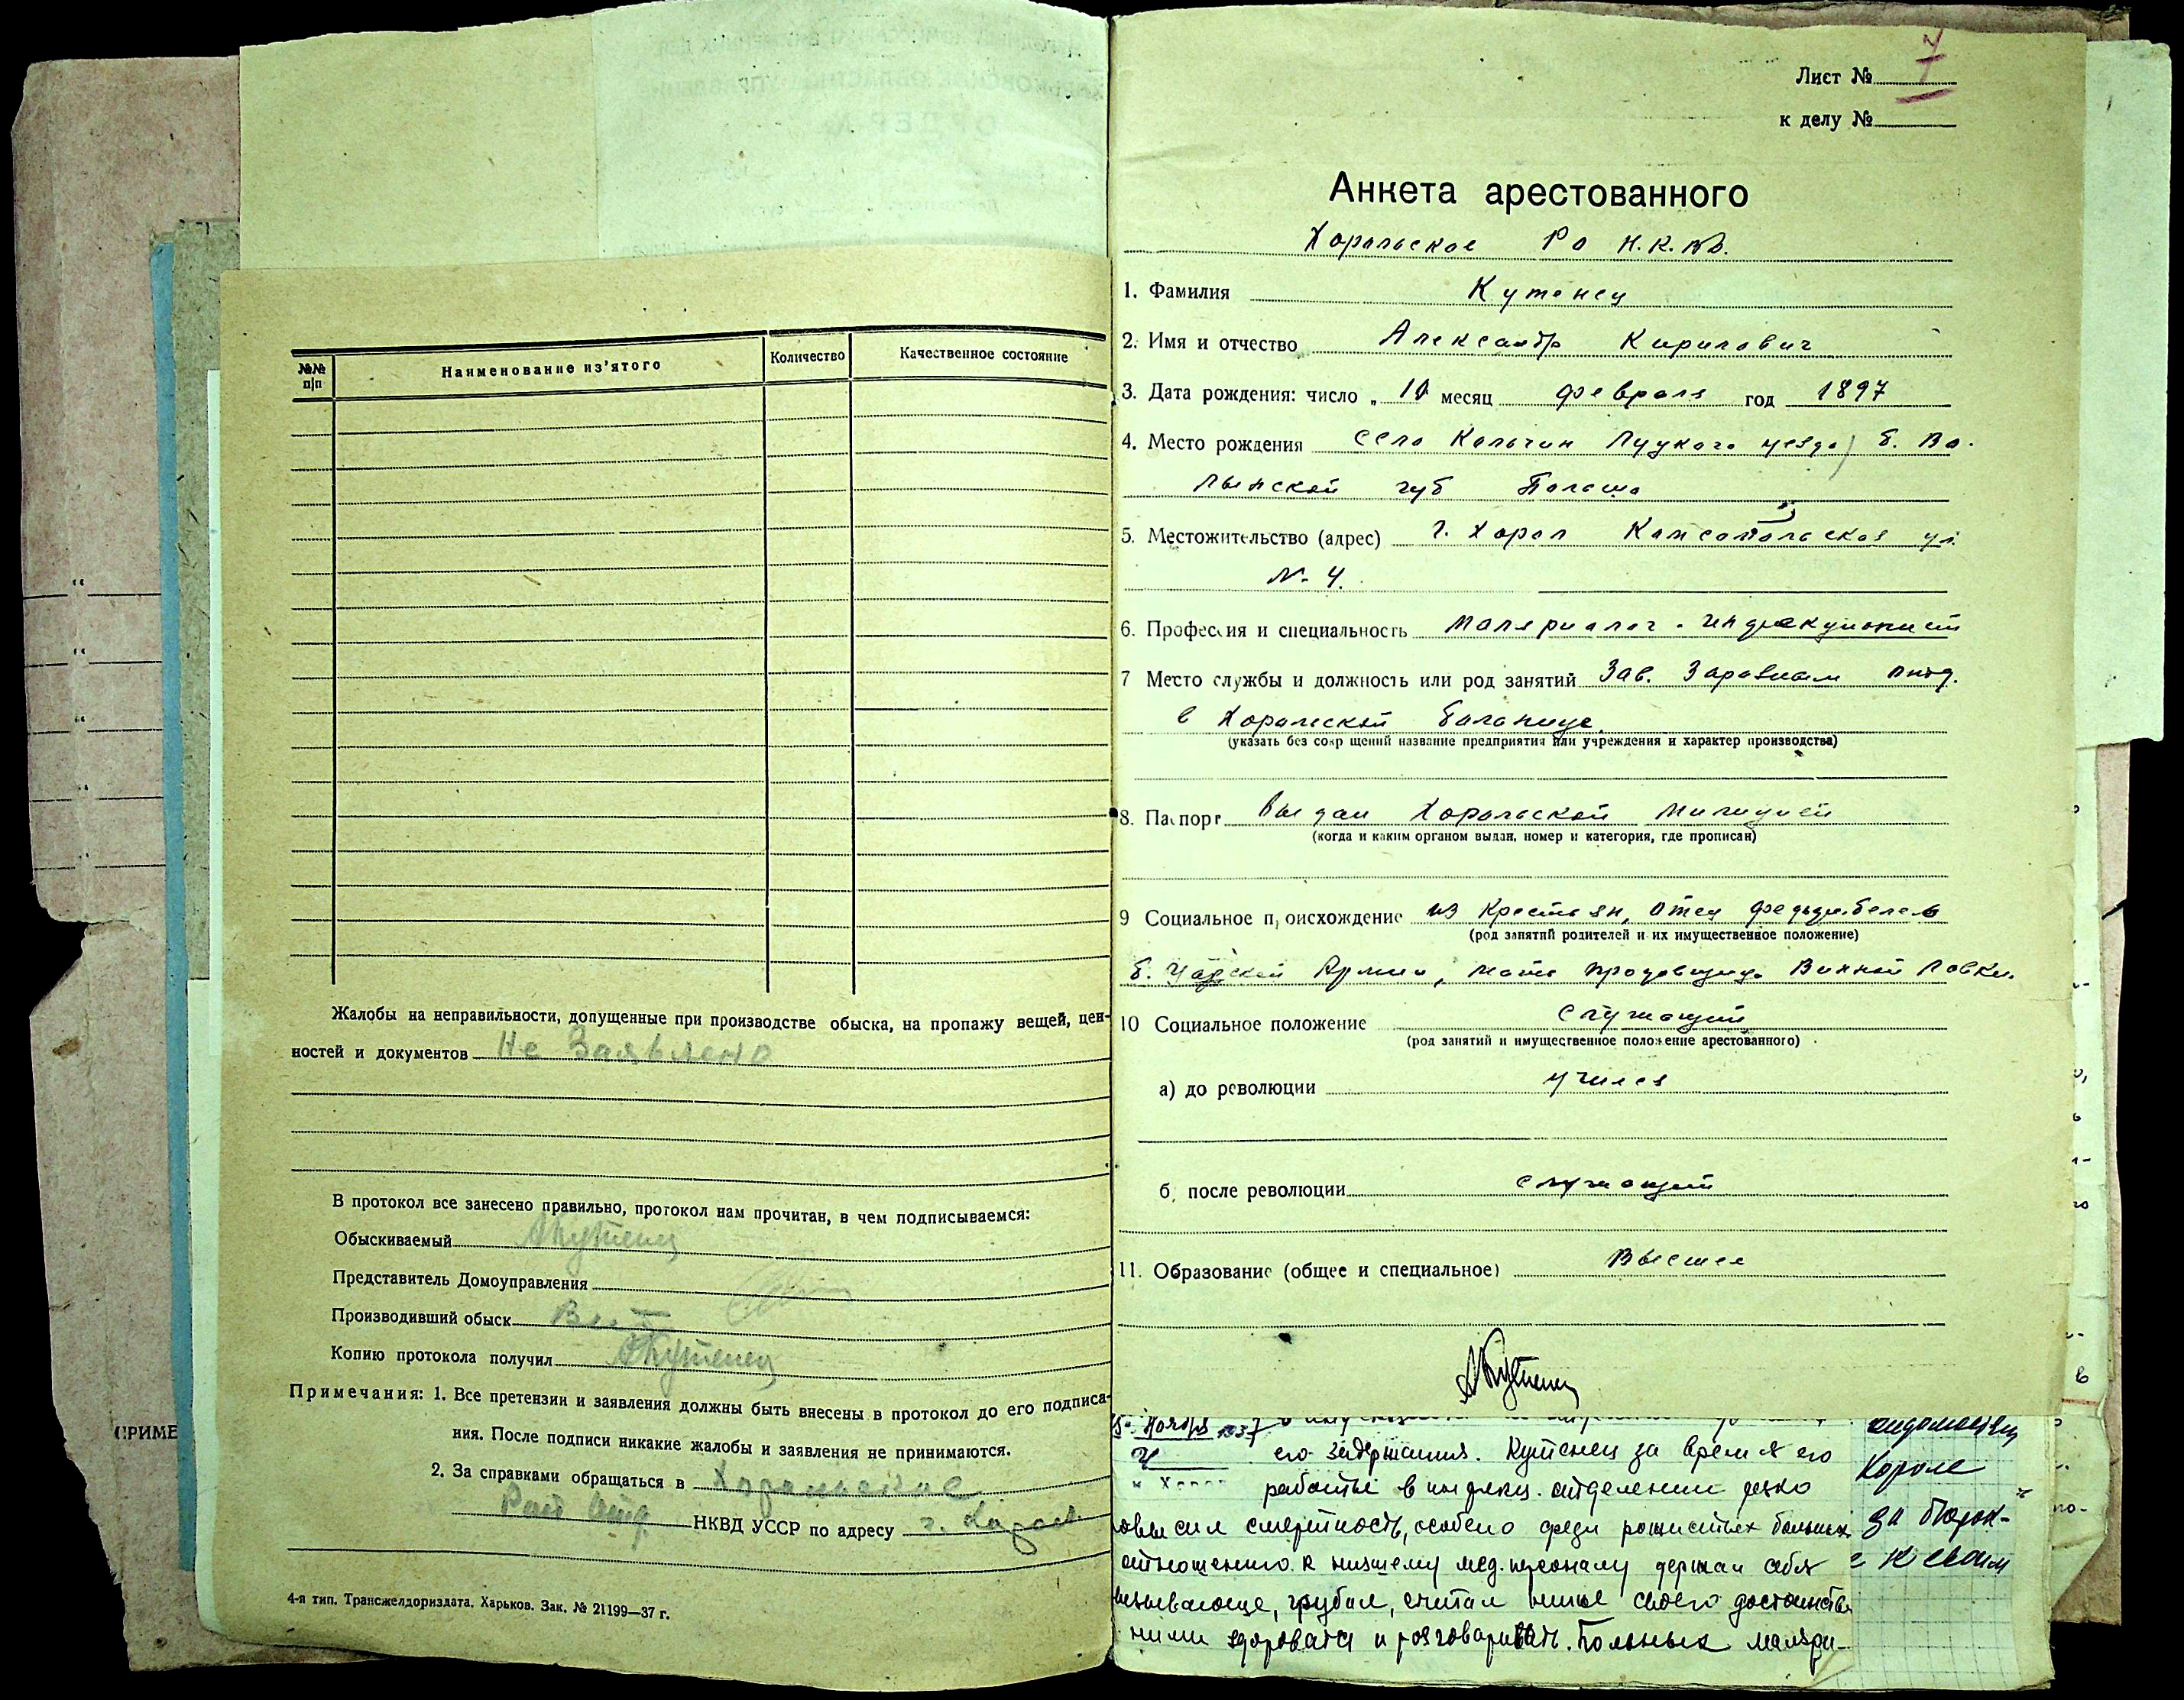 №№ п/п
Наименование из'ятого
Количество
Качественное состояние
Жалобы на неправильности, допущенные при производстве обыска, на пропажу вещей, цен-
ностей и документов Не Заявлено
В протокол все занесено правильно, протокол нам прочитан, в чем подписываемся:
Обыскиваемый АКутенец
Представитель Домоуправления
Производивший обыск
Копию протокола получил АКутенец
Примечания: 1. Все претензии и заявления должны быть внесены в протокол до его подписа-
ния. После подписи никакие жалобы и заявления не принимаются.
2. За справками обращаться в Хорольское
Рай отд НКВД УССР по адресу г. Хорол
4-я тип. Трансжелдориздата. Харьков. Зак. № 21199—37 г.
(ПРИМЕ
Лист № 7
к делу №
Анкета арестованного
Хорольское Р О Н.К.ВД.
1. Фамилия Кутенец
2. Имя и отчество Александр Кирилович
3. Дата рождения: число „ 10 месяц февраля год 1897
4. Место рождения село Кольчин Луцкого уезда) б. Во-
лынской губ Польша
5. Местожительство (адрес) г. Хорол Комсомольская ул.
№ 4.
6. Профессия и специальность Маляриолог - инфекционист
7 Место службы и должность или род занятий Зав. Заразным отд.
в Хорольской больнице
(указать без сокращений название предприятия или учреждения и характер производства)
8. Паспорт Выдан Хорольской милицией
(когда и каким органом выдан, номер и категория, где прописан)
9 Социальное происхождение из Крестьян, отец фельдфебель
(род занятий родителей и их имущественное положение)
б. Царской Армии, мать продавщица Винной Лавки.
10 Социальное положение служащий
(род занятий и имущественное положение арестованного)
а) до революции учился
б) после революции служащий
11. Образование (общее и специальное) Высшее
АКутенец
Ноября 1937
его задержания. Кутенец за время его
работы в инфекц. отделении резко
повысил смертность, особено среди рожистых больных
отношению к низшему мед. персоналу держал себя
вызывающе, грубил, считал ниже своего достоинства
ними здороватся и розговаривать. Больных маляри-
Короле
за
к своим